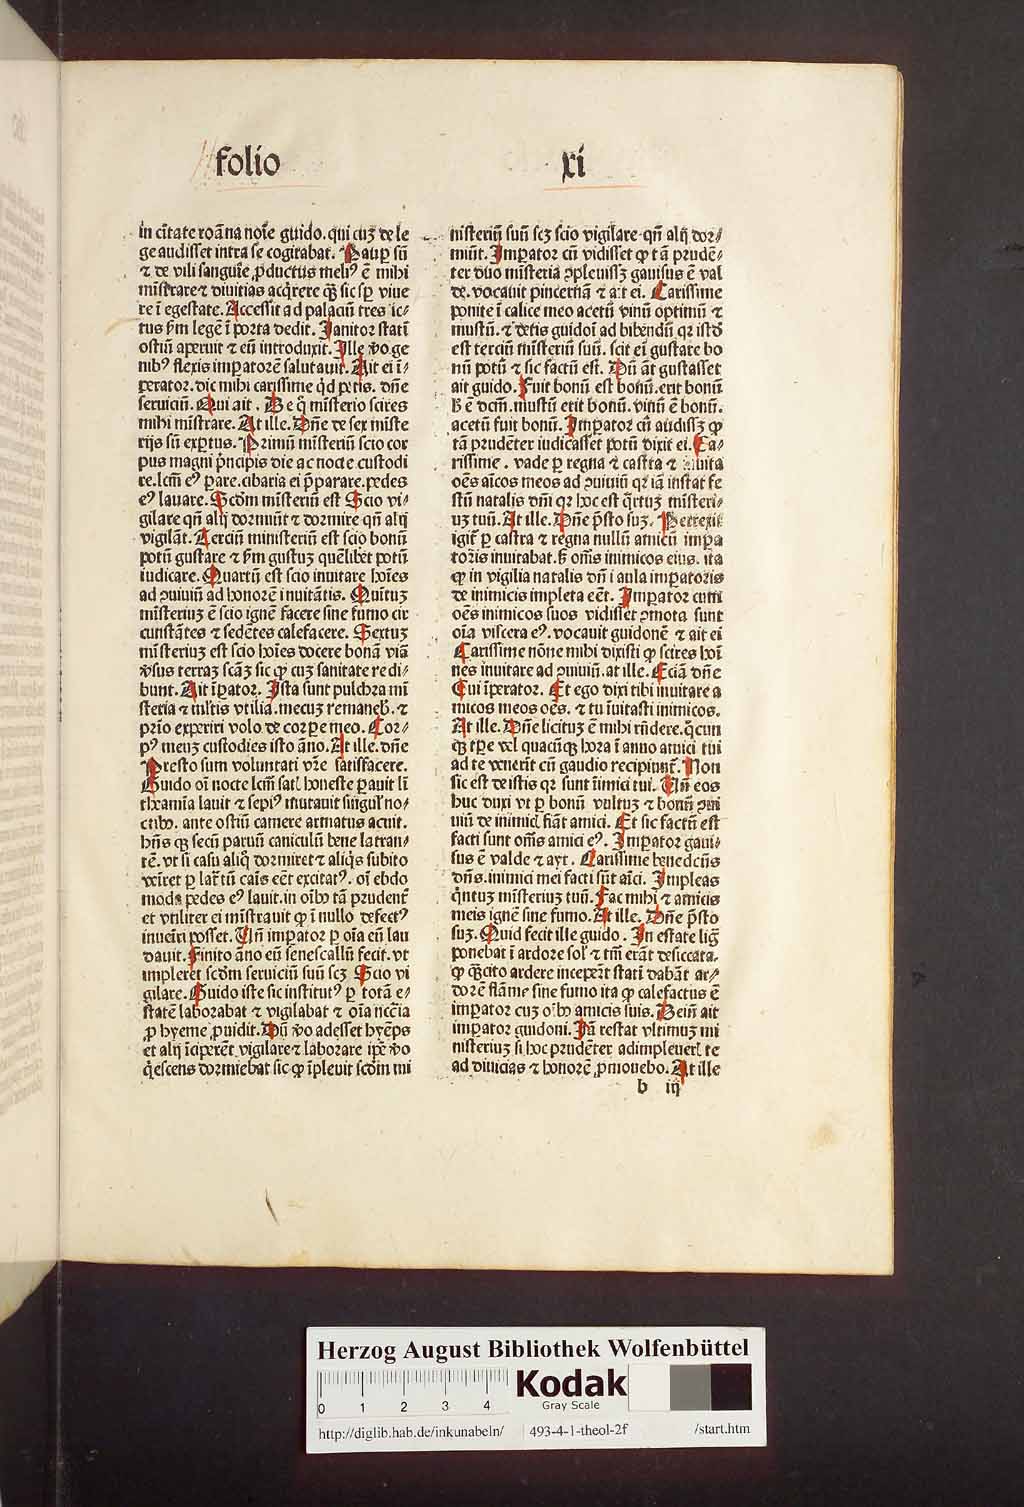 folio
xi
in cītate roāna noīe guido. qui cuꝫ de le
ge audisset intra se cogitabat. Pauꝑ sū
⁊ de vili sanguīe ꝓductus meliꝰ ē mihi
mīstrare ⁊ diuitias acq̄rere q̄ꝫ sic sꝑ viue
re ī egestate. Accessit ad palaciū tres ic⸗
tus ẜm legē ī porta dedit. Janitor statī
ostiū aperuit ⁊ eū introduxit. Ille v̄o ge
nibꝰ flexis impatorē salutauit. Ait ei ī⸗
perator. dic mihi carissime q̄d petis. dn̄e
seruiciū. Qui ait. De q̄ mīsterio scires
mihi mīstrare. At ille. Dn̄e de sex miste
rijs sū exꝑtus. Primū mīsteriū scio cor
pus magni pn̄cipis die ac nocte custodi
re. lcm̄ eꝰ ꝑare. cibaria ei p̄parare. pedes
eꝰ lauare. Scd̄m mīsteriū est Scio vi⸗
gilare qn̄ alij dormiūt ⁊ dormire qn̄ alij
vigilāt. Terciū ministeriū est scio bonū
potū gustare ⁊ ẜm gustuꝫ quēlibet potū
iudicare. Quartū est scio inuitare hoīes
ad ꝯuiuiū ad honorē inuitātis. Quītuꝫ
mīsteriuꝫ ē scio ignē facere sine fumo cir
cunstātes ⁊ sedētes calefacere. Sextuꝫ
mīsteriuꝫ est scio hoīes docere bonā viā
v̄sus terraꝫ scāꝫ sic ꝙ cuꝫ sanitate redi⸗
bunt. Ait īpator. Ista sunt pulchra mī
steria ⁊ mltis vtilia. mecuꝫ remaneb̄. ⁊
prīo experiri volo de corꝑe meo. Cor⸗
pꝰ meuꝫ custodies isto āno. At ille. dn̄e
Presto sum voluntati vr̄e satisfacere.
Guido oī nocte lcm̄ satꝭ honeste ꝑauit lī
theamīa lauit ⁊ sepiꝰ mutauit singulꝭ no⸗
ctibꝰ. ante ostiū camere armatus acuit.
hn̄s q̄ꝫ secū paruū caniculū bene latran⸗
tē. vt si casu aliq̄ dormiret ⁊ aliq̄s subito
veīret ꝑ lat̄tū caīs eēt excitatꝰ. oī ebdo
mada pedes eꝰ lauit. in oībꝰ tā prudent̄
et vtiliter ei mīstrauit ꝙ ī nullo defectꝰ
inueīri posset. Un̄ impator ꝑ oīa eū lau
dauit. Finito āno eū senescallū fecit. vt
impleret scd̄m seruiciū suū scꝫ Scio vi
gilare. Guido iste sic institutꝰ ꝑ totā e⸗
statē laborabat ⁊ vigilabat ⁊ oīa ncc̄ia
ꝓ hyeme ꝓuidit. Dū v̄o adesset hyēps
et alij īciperēt vigilare ⁊ laborare ip̄e v̄o
q̄escens dormiebat sic ꝙ īpleuit scd̄m mi
nisteriū suū scꝫ scio vigilare qn̄ alij dor⸗
miūt. Impator cū vidisset ꝙ tā prudē⸗
ter duo mīsteria ꝯpleuissꝫ gauisus ē val
de. vocauit pincernā ⁊ ait ei. Carissime
ponite ī calice meo acetū vinū optimū ⁊
mustū. ⁊ detis guidoī ad bibendū qꝛ istd̄
est terciū mīsteriū suū. scit eī gustare bo
nū potū ⁊ sic factū est. Dū āt gustasset
ait guido. Fuit bonū est bonū. erit bonū
ẜ ē dcm̄. mustū erit bonū. vinū ē bonū.
acetū fuit bonū. Impator cū audissꝫ ꝙ
tā prudēter iudicasset potū dixit ei. Ca⸗
rissime. vade ꝑ regna ⁊ castra ⁊ inuita
oēs aīcos meos ad ꝯuiuiū qꝛ iā instat fe
stū natalis dn̄i qꝛ hoc est q̄rtuꝫ misteri⸗
uꝫ tuū. At ille. Dn̄e p̄sto suꝫ. Perrexit
igit̄ ꝑ castra ⁊ regna nullū amicū impa
toris inuitabat. ẜ om̄s inimicos eius. ita
ꝙ in vigilia natalis dn̄i aula impatoris
de inimicis impleta eēt. Imperator cum
oēs inimicos suos vidisset ꝯmota sunt
oīa viscera eꝰ. vocauit guidonē ⁊ ait ei
Carissime nōne mihi dixisti ꝙ scires hoī
nes inuitare ad ꝯuiuiū. at ille. Eciā dn̄e
Cui īperator. Et ego dixi tibi inuitare a
micos meos oēs. ⁊ tu īuitasti inimicos.
At ille. Dn̄e licituꝫ ē mihi rn̄dere. q̄cun
q̄ꝫ tꝑe vel quacūq̄ꝫ hora ī anno amici tui
ad te venerīt cū gaudio recipiunt̄. Non
sic est de istis qꝛ sunt īimici tui. Un̄ eos
huc duxi vt ꝑ bonū vultuꝫ ⁊ bonū ꝯui
uiū de inimicꝭ fiāt amici. Et sic factū est
facti sunt om̄s amici eꝰ. Impator gaui⸗
sus ē valde ⁊ ayt. Carissime benedcūs
dn̄s. inimici mei facti sūt aīci. Impleas
q̄ntuꝫ misteriuꝫ tuū. Fac mihi ⁊ amicis
meis ignē sine fumo. At ille. Dn̄e p̄sto
suꝫ. Quid fecit ille guido. In estate liḡ
ponebat ī ardore solꝭ ⁊ tm̄ erāt desiccata.
ꝙ q̄ꝫcito ardere inceperēt statī dabāt ar⸗
dorē flāme sine fumo ita ꝙ calefactus ē
imꝑator cuꝫ oībꝰ amicis suis. Dein̄ ait
imꝑator guidoni. Jā restat vltimuꝫ mi
nisteriuꝫ si hoc prudēter adimpleuerꝭ te
ad diuicias ⁊ honorē ꝓmouebo. At ille
b iij
Herzog August Bibliothek Wolfenbüttel
0 1 2 3 4
Kodak
Gray Scale
http://diglib.hab.de/inkunabeln/ 493-4-1-theol-2f /start.htm